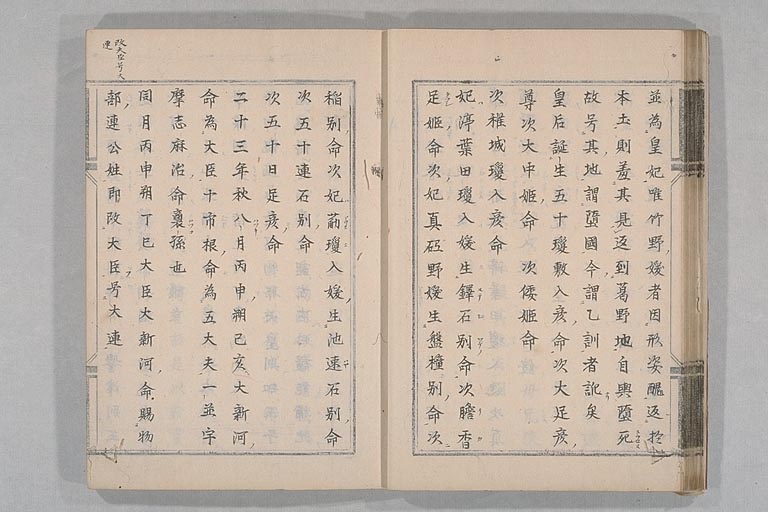 並為皇妃唯竹野媛者因形姿醜返於
本土則羞其見返到葛野地自輿墮死
故号其地謂墮國今謂乙訓者訛矣
皇后誕生五十瓊敷入彦命次大足彦
尊次大中姫命 次倭姫命
次稚城瓊入彦命
妃渟葉田瓊入媛生鐸石別命次膽香
足姫命次妃真砥野媛生盤橦別命次
稲別命次妃薊瓊入媛生池速石別命
次五十速石別命
次五十日足彦命
二十三年秋八月丙申朔己亥大新河
命為大臣十市根命為五大夫一並宇
摩志麻治命裏孫也
同月丙申朔丁巳大臣大新河命賜物
部連公姓即改大臣号大連
改大臣号大
連